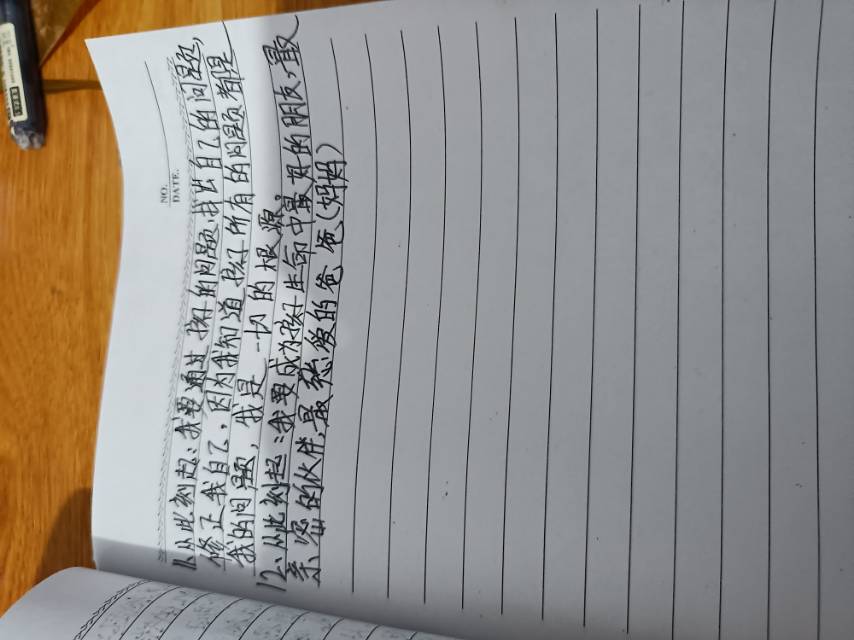 NO.
DATE.
11、从此刻起：我要通过孩子的问题，找出自己的问题，
修正我自己，因为我知道孩子所有的问题都是
我的问题，我是一切的根源。
12、从此刻起：我要成为孩子生命中最好的朋友，最
亲密的伙伴，最慈爱的爸爸（妈妈）